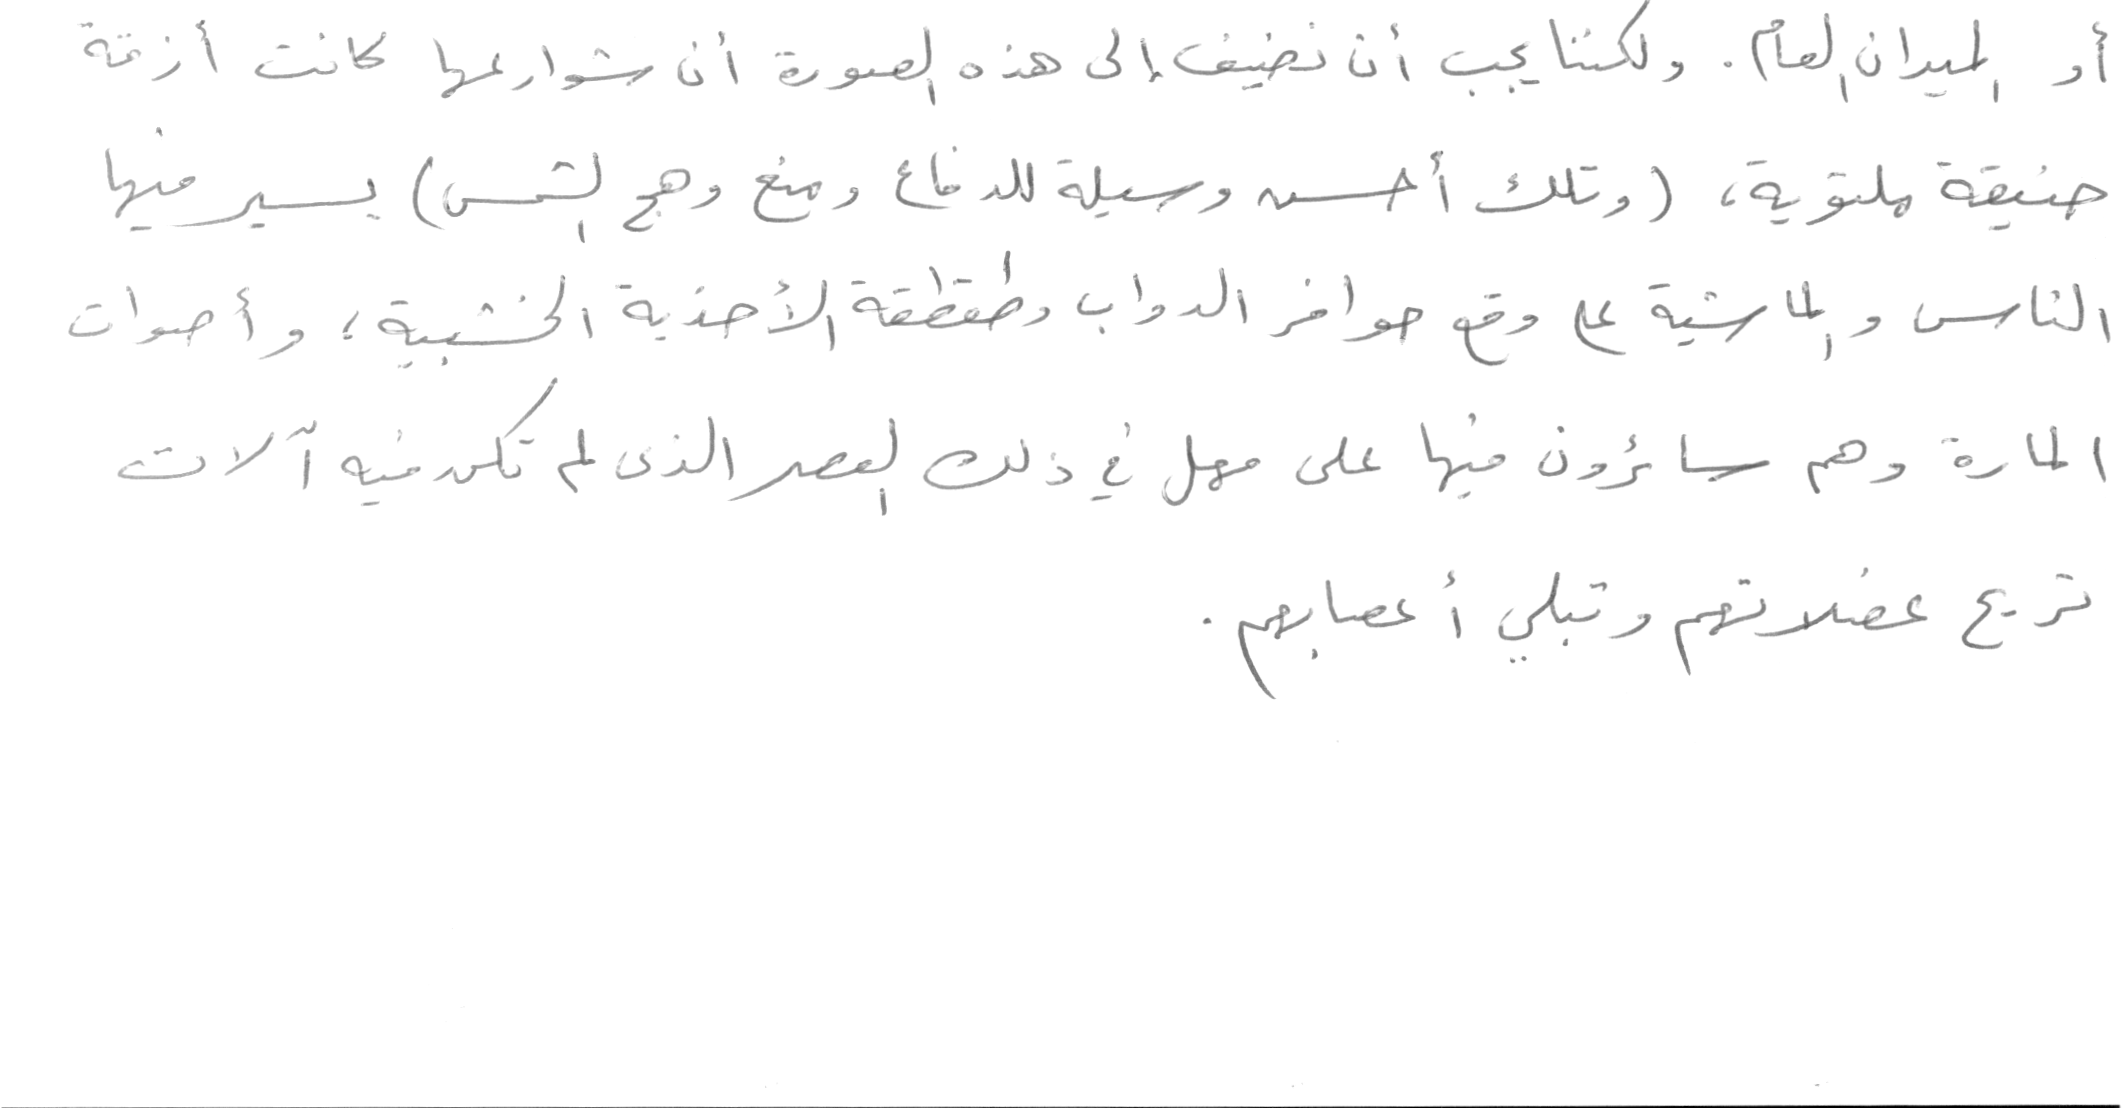 أو الميدان العام. ولكننا يجب أن نضيف إلى هذه الصورة أن شوارعها كانت أزقة
ضيقة ملتوية، (وتلك أحسن وسيلة للدفاع ومنع وهج الشمس) يسير فيها
الناس والماشية على وقع حوافر الدواب وطقطقة الأحذية الخشبية؛ وأصوات
المارة وهم سائرون فيها على مهل في ذلك العصر الذى لم تكن فيه آلات
تريح عضلاتهم وتبلي أعصابهم.